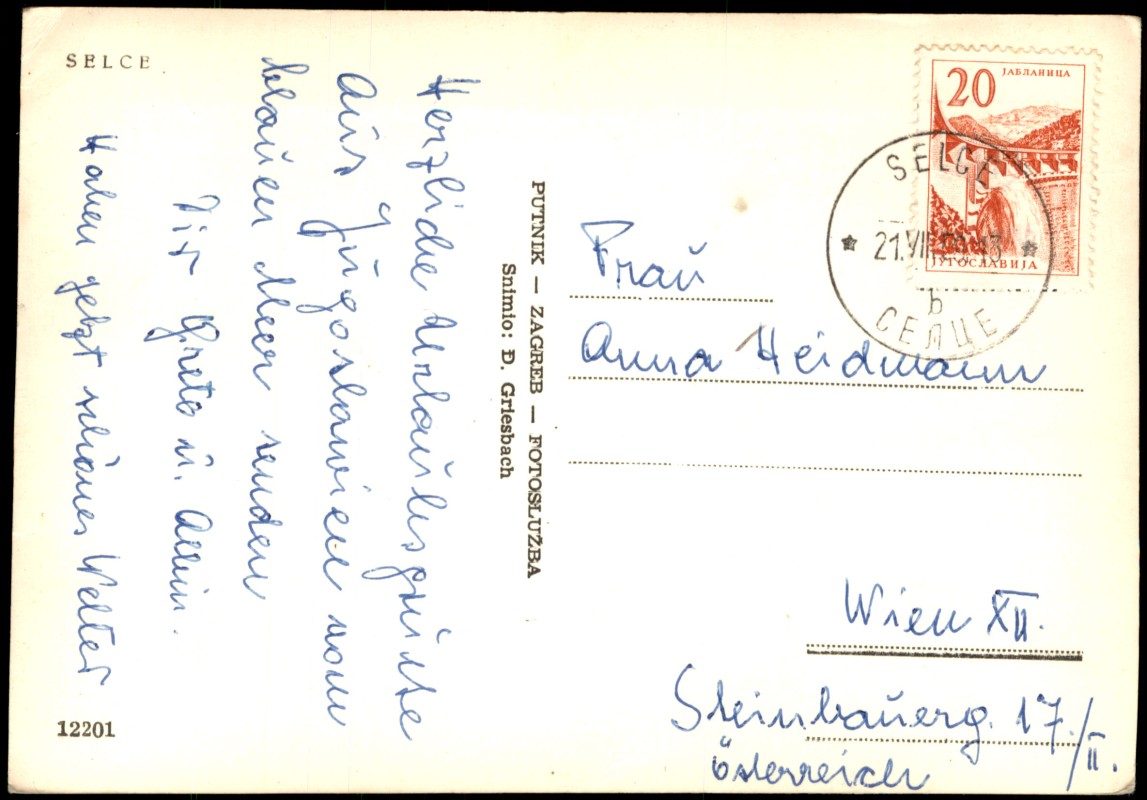 SELCE
Herzliche Urlaubsgrüsse
aus Jugoslawien vom
blauen Meer senden
Dir Greta u.
Haben jetzt schönes Wetter
12201
PUTNIK — ZAGREB — FOTOSLUŽBA
Snimio: Đ. Griesbach
20
ЈАБЛАНИЦА
ЈУГОСЛАВИЈА
SELCE
21.VII
13
b
СЕЛЦЕ
Frau
Anna Heidmann
Wien XII.
Steinbauerg. 17/II.
Österreich